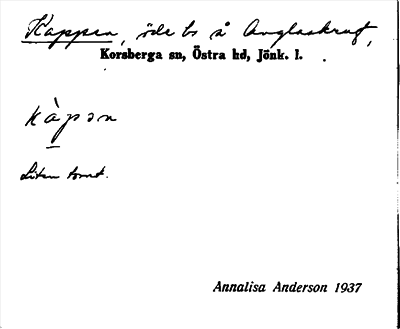 Kappen, öde bs å Anglaskruf,
Korsberga sn, Östra hd, Jönk. l.
kàpən
Liten tomt.
Annalisa Anderson 1937